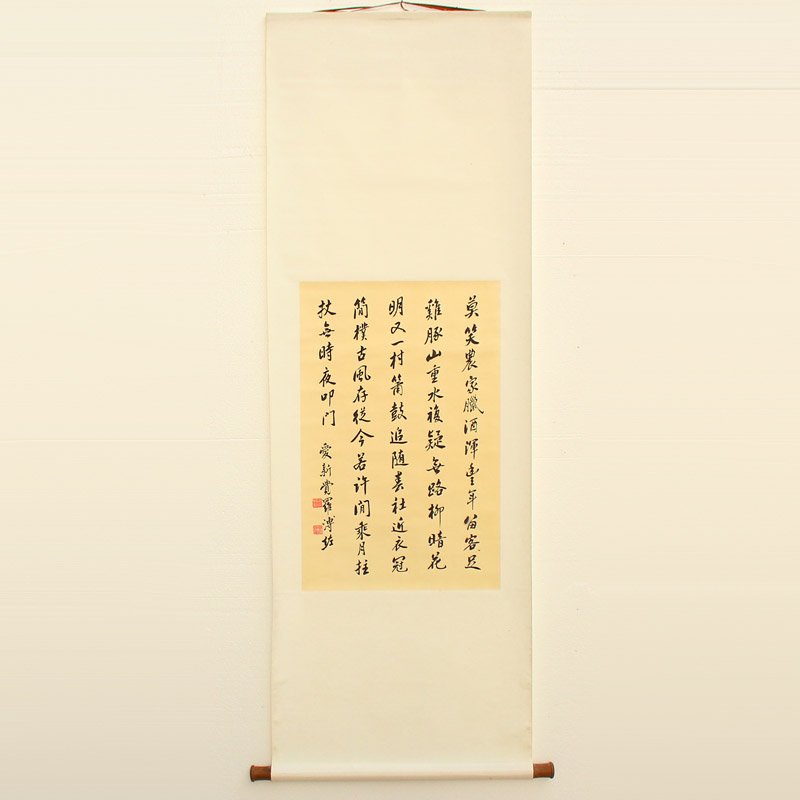 莫笑農家臘酒渾豐年留客足
雞豚山重水複疑無路柳暗花
明又一村簫鼓追随春社近衣冠
簡樸古風存從今若許閒乘月拄
杖無時夜叩门
愛新覺羅溥